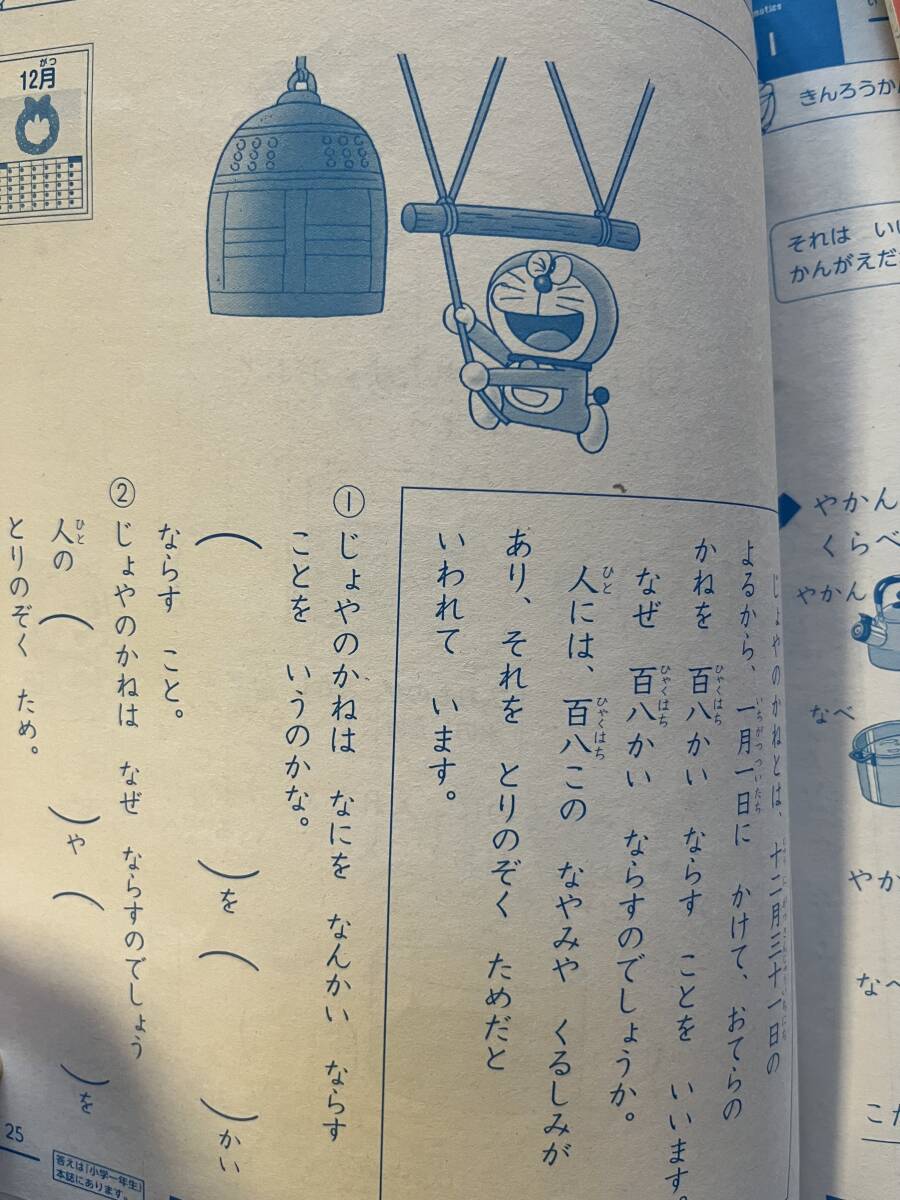 12月
がつ
じょやのかねとは、十二月三十一日の
よるから、一月一日に　かけて、おてらの
いちがつついたち
かねを　百八かい　ならす　ことを　いいます。
ひゃくはち
なぜ　百八かい　ならすのでしょうか。
ひゃくはち
人には、百八この　なやみや　くるしみが
ひと
ひゃくはち
あり、それを　とりのぞく　ためだと
いわれて　います。
①じょやのかねは　なにを　なんかい　ならす
ことを　いうのかな。
（　　　）を（　　　）かい
ならす　こと。
②じょやのかねは　なぜ　ならすのでしょう
人の（　　　）や（　　　）を
ひと
とりのぞく　ため。
25
答えは「小学一年生」
本誌にあります。
1
きんろうか
それは　い
かんがえだ
◆やかん
くらべ
やかん
なべ
やか
なべ